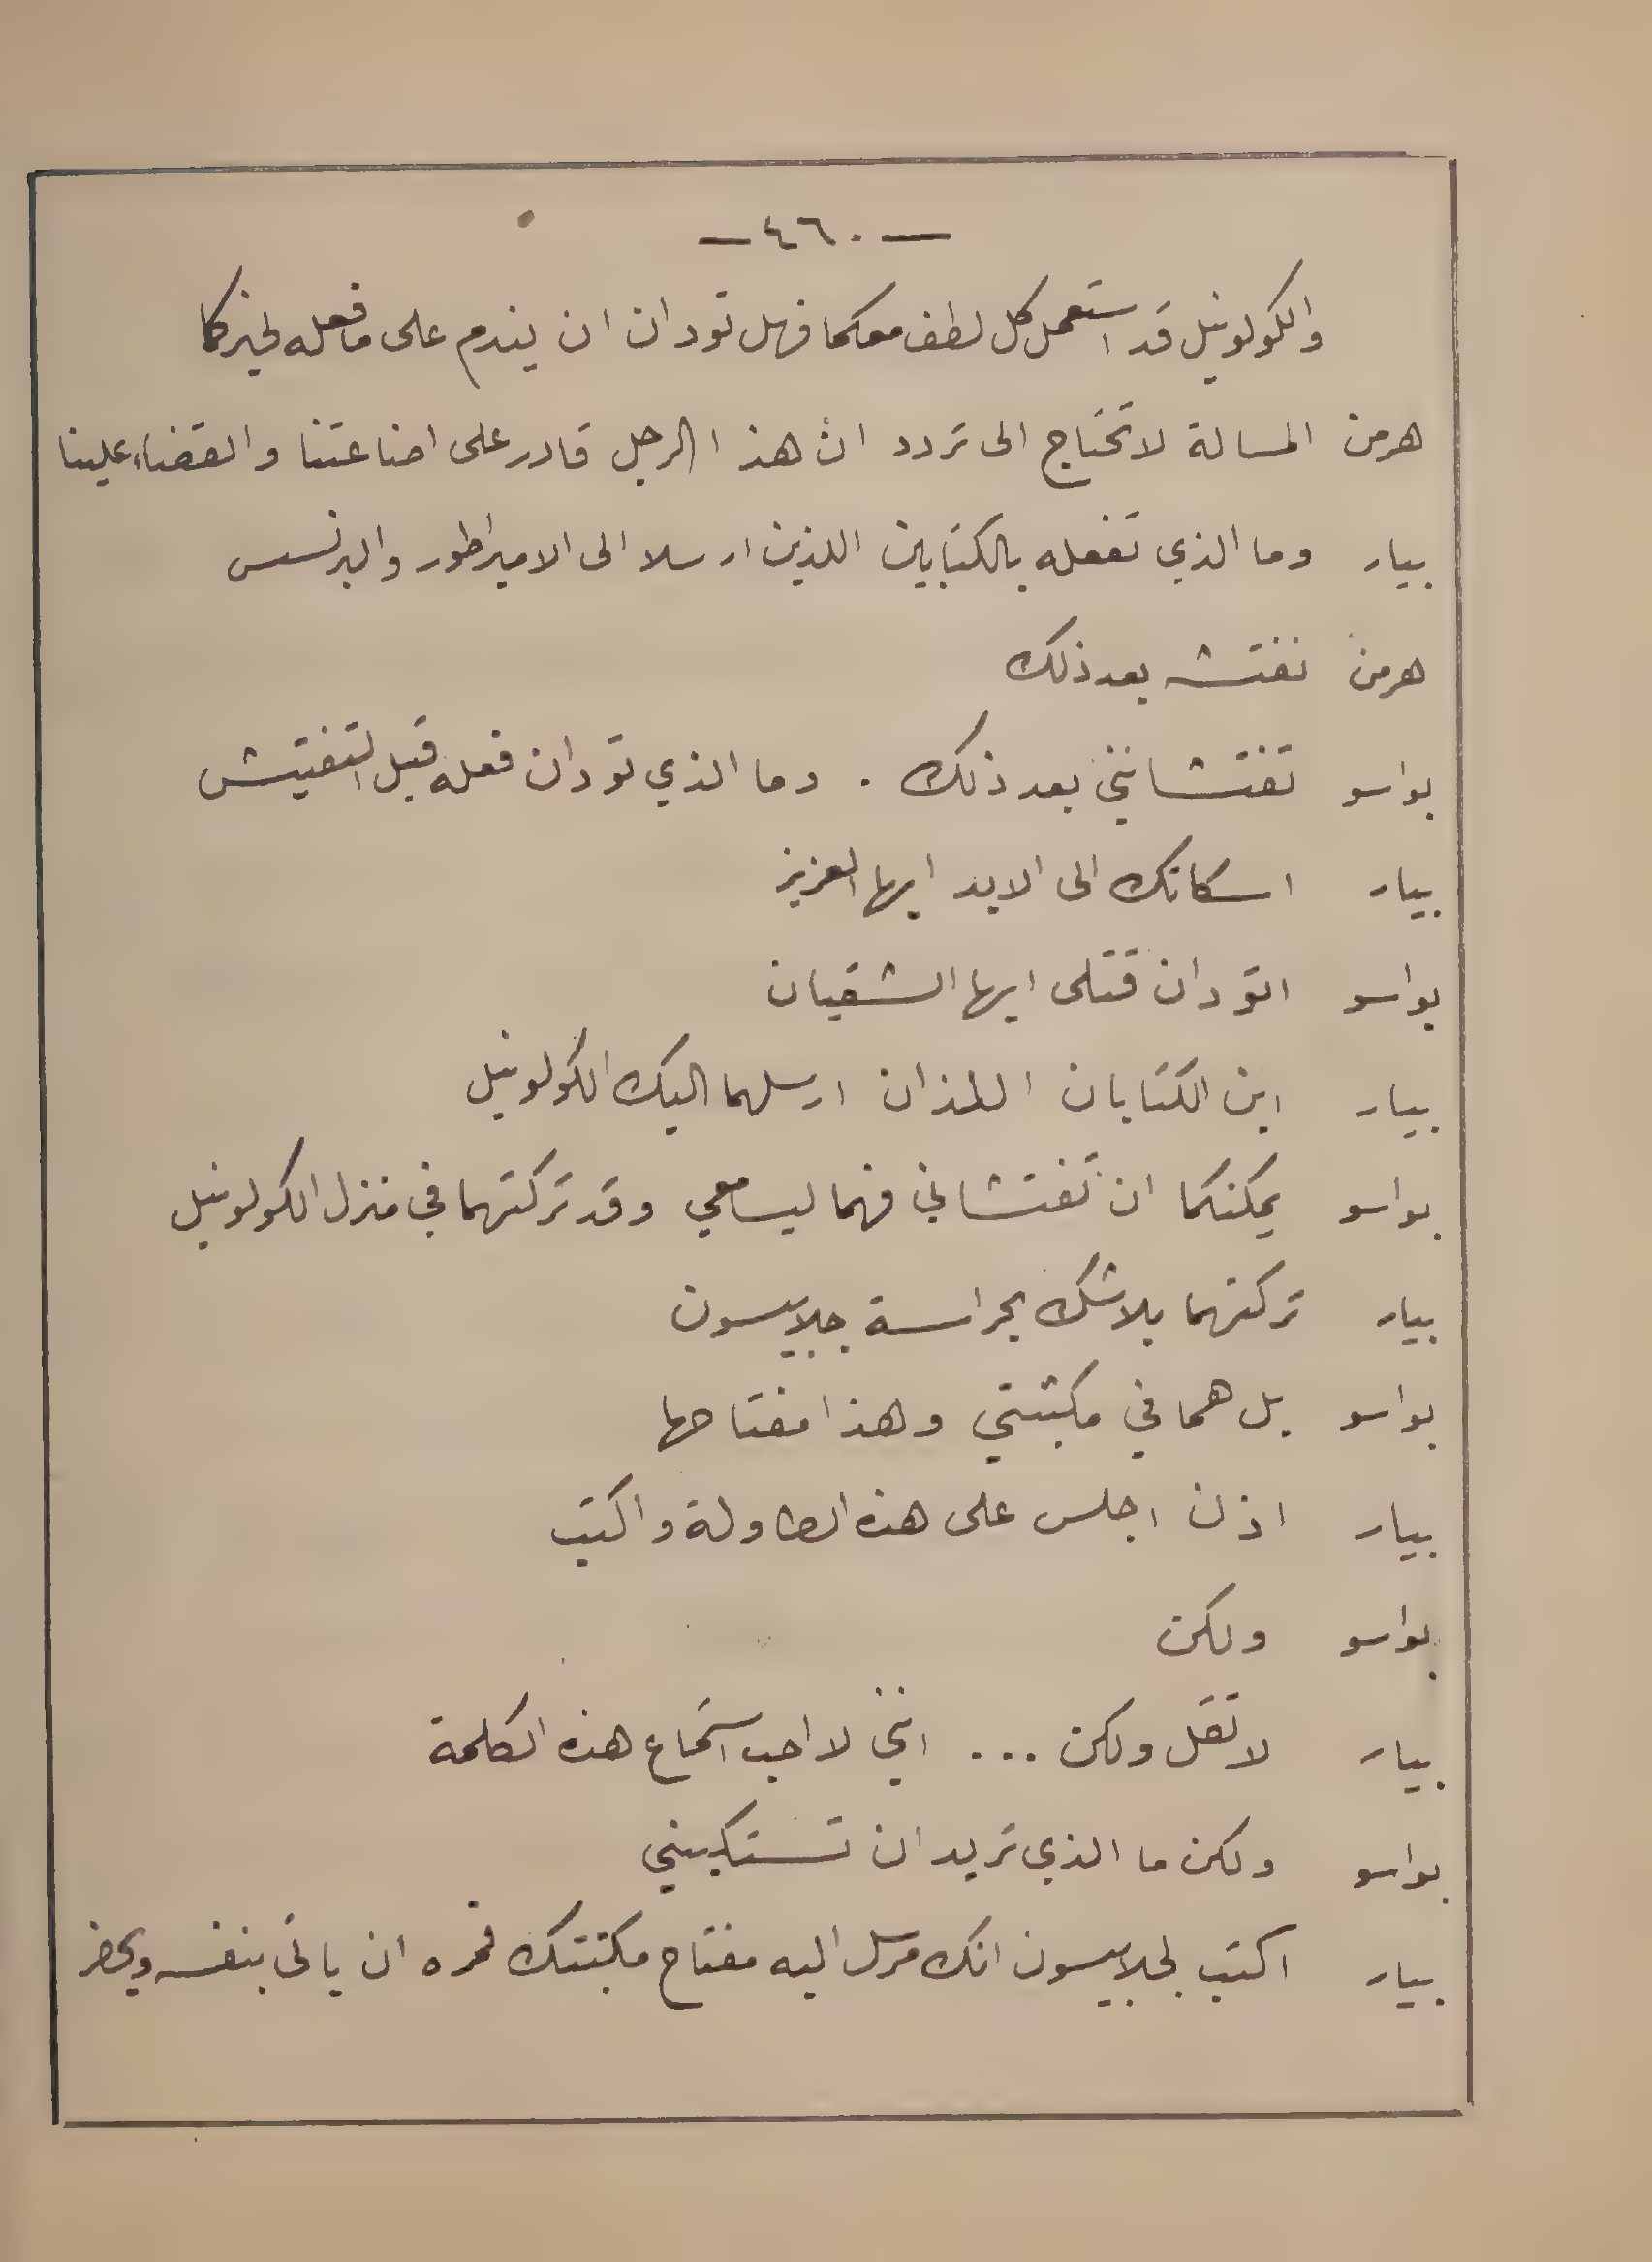 — ٤٦٠ —
والكولونيل قد استعمل كل لطف معكما فهل تودان ان يندم على ما فعله لخيركما
هرمن المسالة لا تحتاج الى تردد ان هذا الرجل قادر على اضاعتنا والقضاء علينا
بيار وما الذي تفعله بالكتابين اللذين ارسلا الى الامبراطور والبرنسس
هرمن نفتشه بعد ذلك
بواسو تفتشانني بعد ذلك . وما الذي تودان فعله قبل التفتيش
بيار اسكاتك الى الابد ايها العزيز
بواسو اتودان قتلى ايها الشقيان
بيار اين الكتابان اللذان ارسلهما اليك الكولونيل
بواسو يمكنكما ان تفتشاني فهما ليسا معي وقد تركتهما في منزل الكولونيل
بيار تركتهما بلا شك بحراسة جلابيسون
بواسو بل هما في مكتبتي وهذا مفتاحها
بيار اذن اجلس على هذه الطاولة واكتب
بواسو ولكن
بيار لا تقل ولكن ... انني لا احب استماع هذه الكلمة
بواسو ولكن ما الذي تريد ان تستكتبني
بيار اكتب لجلابيسون انك مرسل اليه مفتاح مكتبتك فمره ان ياتى بنفسه ويحضر